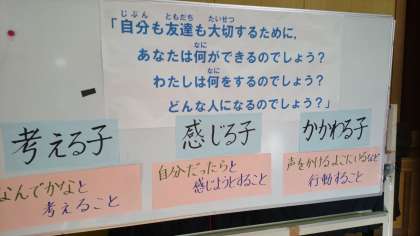 「自分も友達も大切するために、
あなたは何ができるのでしょう？
わたしは何をするのでしょう？
どんな人になるのでしょう？」
考える子
感じる子
かかわる子
なんでかなと
考えること
自分だったらと
感じようとすること
声をかけるよこにいるなど
行動すること